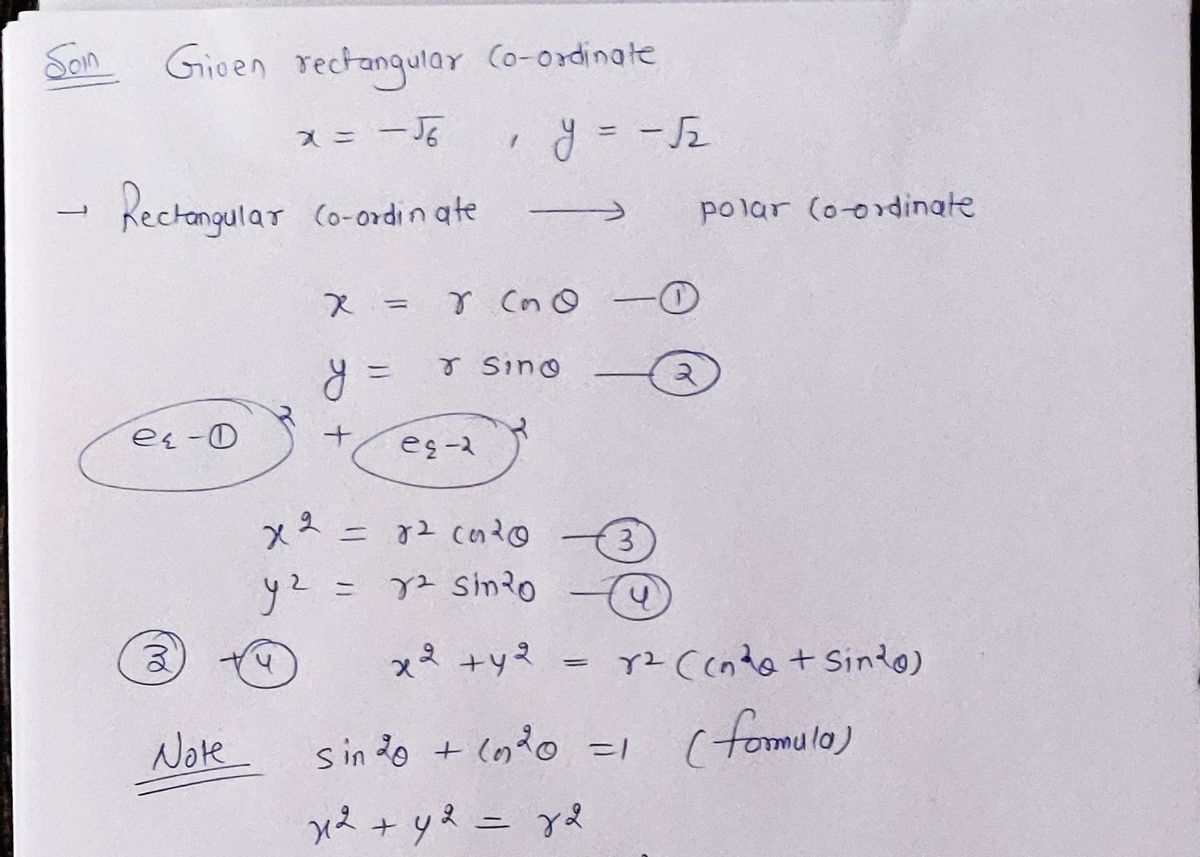 Soln Given rectangular Co-ordinate
x = -√6 , y = -√2
→ Rectangular Co-ordinate → polar Co-ordinate
x = r cos θ — ①
y = r sin θ — ②
eq-① ² + eq-2 ²
x² = r² cos²θ — ③
y² = r² sin²θ — ④
③ + ④ x² + y² = r² (cos²θ + sin²θ)
Note sin²θ + cos²θ = 1 (formula)
x² + y² = r²